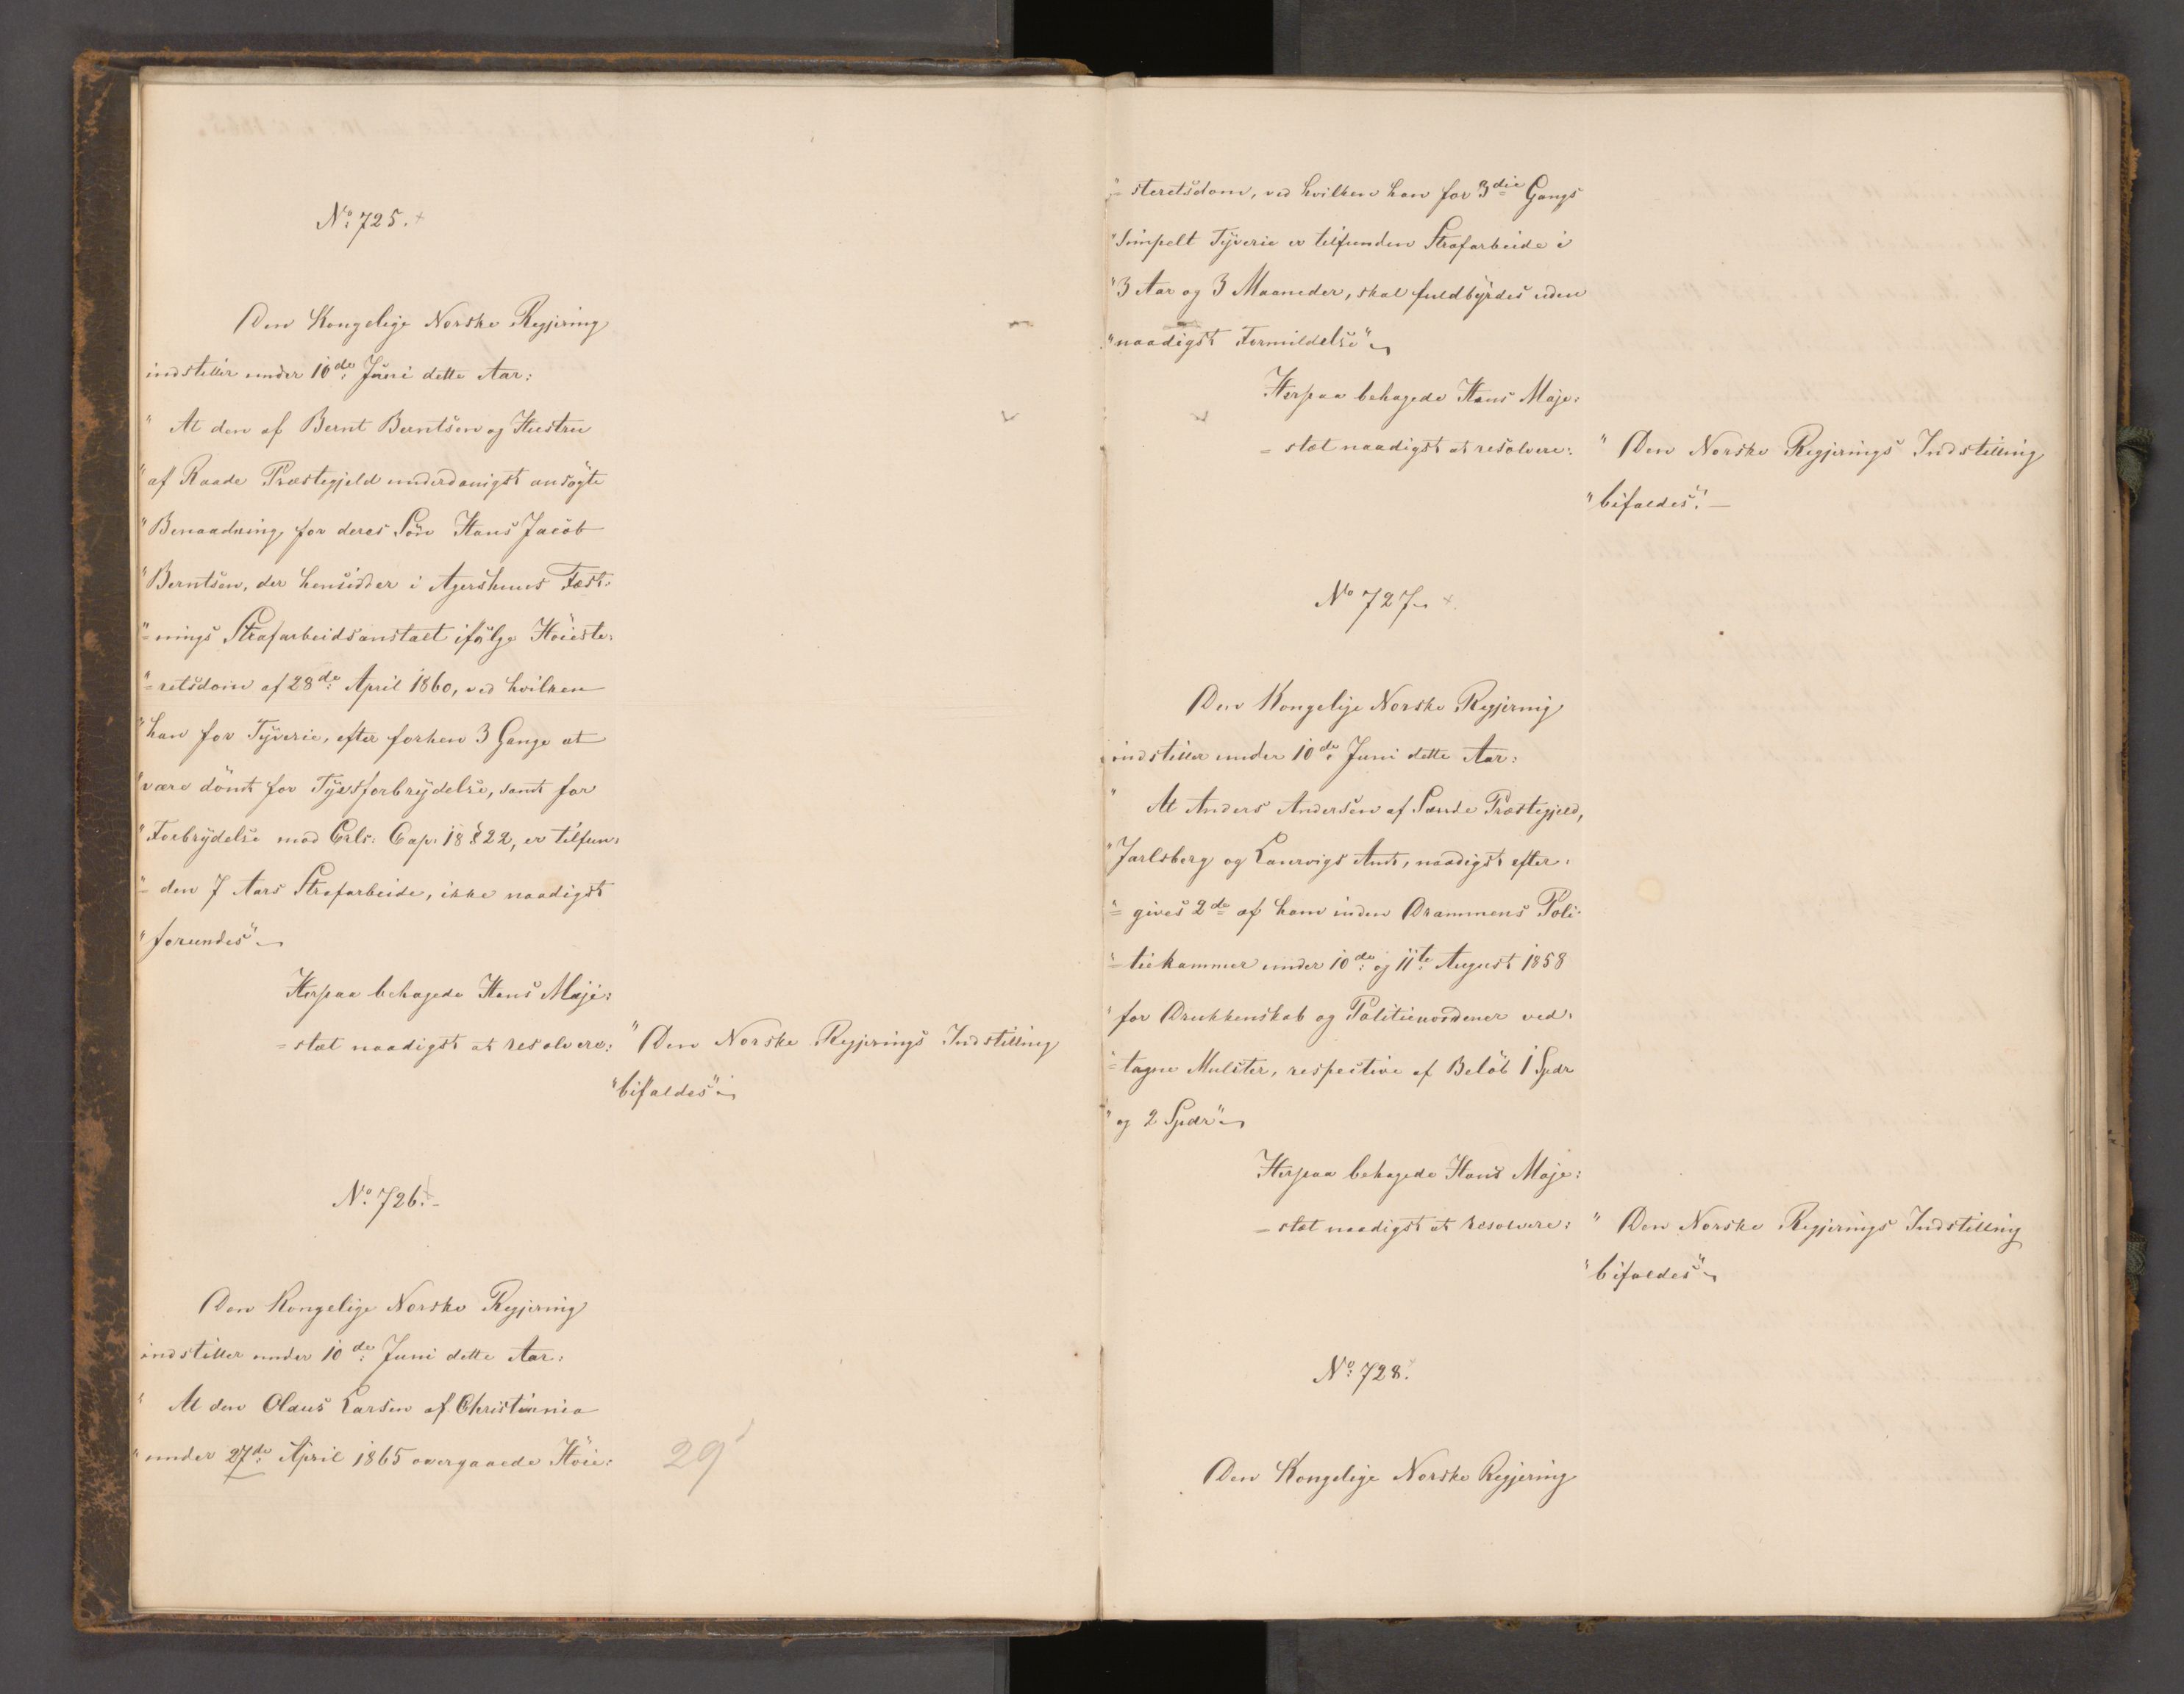 No: 725.
Den Kongelige Norske Regjering
indstiller under 10de: Juni dette Aar:
" At den af Bernt Berntsen og Hustru
" af Raade Præstegjeld underdanigst ansøgte
" Benaadning for deres Søn Hans Jacob
" Berntsen, der hensidder i Agershuus Fæst:
"= nings Strafarbeidsanstalt ifølge Høieste:
"= retsdom af 28de: April 1860, ved hvilken
" han for Tyverie, efter forhen 3 Gange at
" være dømt for Tyvsforbrydelse, samt for
" Forbrydelse mod Crls: Cap: 18 § 22, er tilfun:
"= den 7 Aars Strafarbeide, ikke naadigst
" forundes"
Herpaa behagede Hans Maje:
= stæt naadigst at resolvere:
" Den Norske Regjerings Indstilling
" bifaldes"
No: 726.
Den Kongelige Norske Regjering
indstiller under 10de: Juni dette Aar:
" At den Olaus Larsen af Christiania
" under 27de: April 1865 overgaaede Høie:
29
"= steretsdom, ved hvilken han for 3die Gangs
" Simpelt Tyverie er tilfunden Strafarbeide i
" 3 Aar og 3 Maaneder, skal fuldbyrdes uden
" naadigst Formildelse"
Herpaa behagede Hans Maje:
= stæt naadigst at resolvere:
" Den Norske Regjerings Indstilling
" bifaldes". —
No 727
Den Kongelige Norske Regjering
indstiller under 10de: Juni dette Aar:
" At Anders Andersen af Sande Præstegjeld,
" Jarlsberg og Laurvigs Amt, naadigst efter:
"= gives 2de af ham inden Drammens Poli:
"= tiekammer under 10de: og 11te: August 1858
" for Drukkenskab og Politieuordener ved:
"= tagne Mulcter, respective af Beløb 1 Spdr
" og 2 Spdr"
Herpaa behagede Hans Maje:
= stæt naadigst at resolvere:
" Den Norske Regjerings Indstilling
" bifaldes"
No: 728.
Den Kongelige Norske Regjering